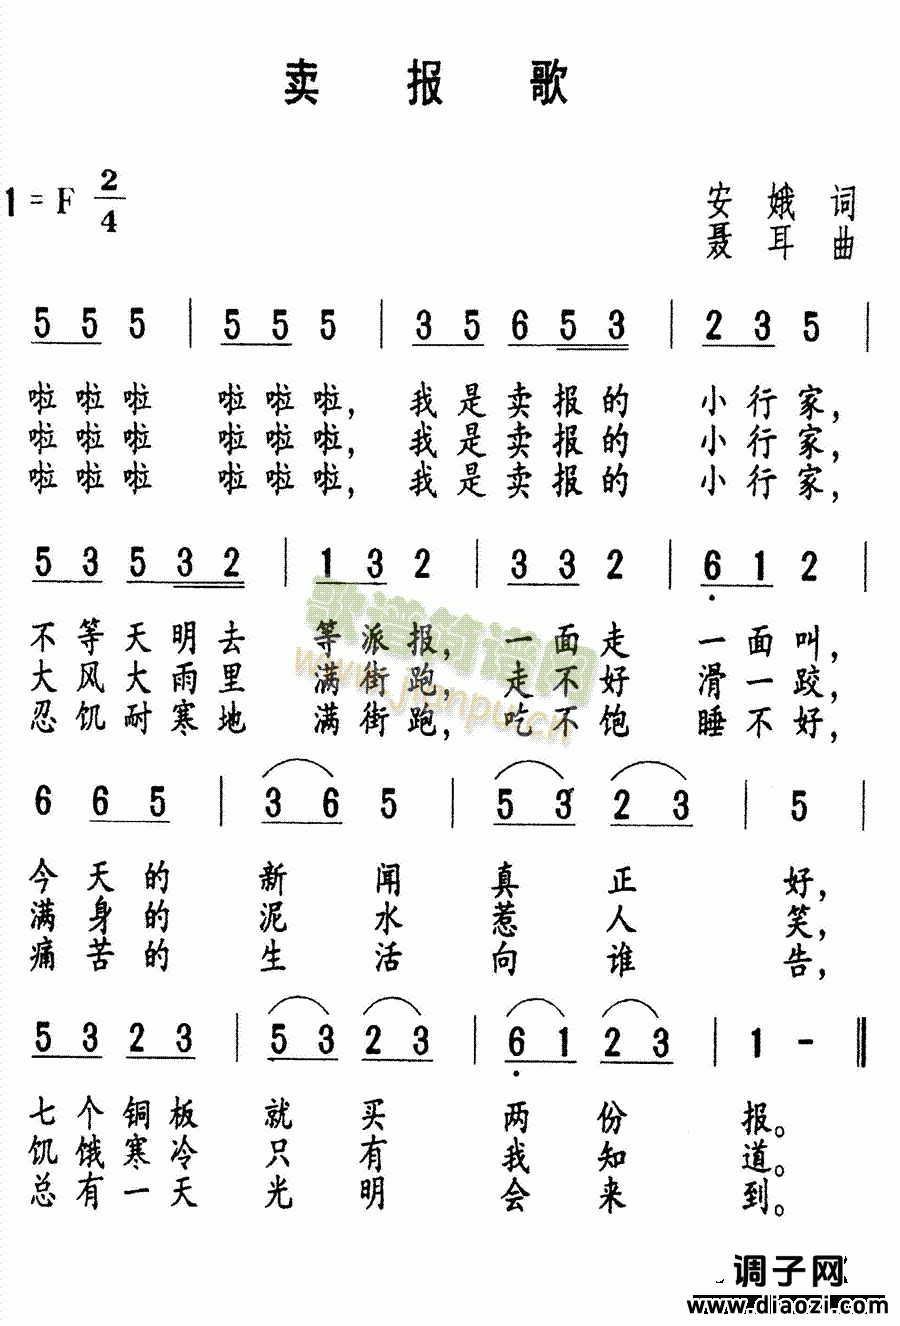 卖 报 歌
1 = F 2/4
安 娥 词
聂 耳 曲
5 5 5 | 5 5 5 | 3 5 6 5 3 | 2 3 5 |
啦 啦 啦 啦 啦 啦, 我 是 卖 报 的 小 行 家,
啦 啦 啦 啦 啦 啦, 我 是 卖 报 的 小 行 家,
啦 啦 啦 啦 啦 啦, 我 是 卖 报 的 小 行 家,
5 3 5 3 2 | 1 3 2 | 3 3 2 | 6̣ 1 2 |
不 等 天 明 去 等 派 报, 一 面 走 一 面 叫,
大 风 大 雨 里 满 街 跑, 走 不 好 滑 一 跤,
忍 饥 耐 寒 地 满 街 跑, 吃 不 饱 睡 不 好,
歌谱简谱网
www.jianpu.cn
6 6 5 | 3 6 5 | 5 3 2 3 | 5 |
今 天 的 新 闻 真 正 好,
满 身 的 泥 水 惹 人 笑,
痛 苦 的 生 活 向 谁 告,
5 3 2 3 | 5 3 2 3 | 6̣ 1 2 3 | 1 - ‖
七 个 铜 板 就 买 两 份 报。
饥 饿 寒 冷 只 有 我 知 道。
总 有 一 天 光 明 会 来 到。
调子网
www.diaozi.com